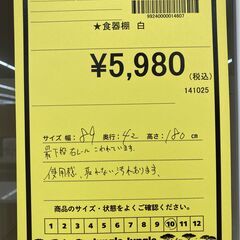 99240000014607
★食器棚 白
¥5,980
(税込)
141025
サイズ 幅: 89 奥行: 42 高さ: 180 cm
最下段右レールこわれています。
使用感、取れない汚れあります。
商品のサイズ・状態をよくご確認ください。
1 2 3 4 5 6 7 8 9 10 11 12